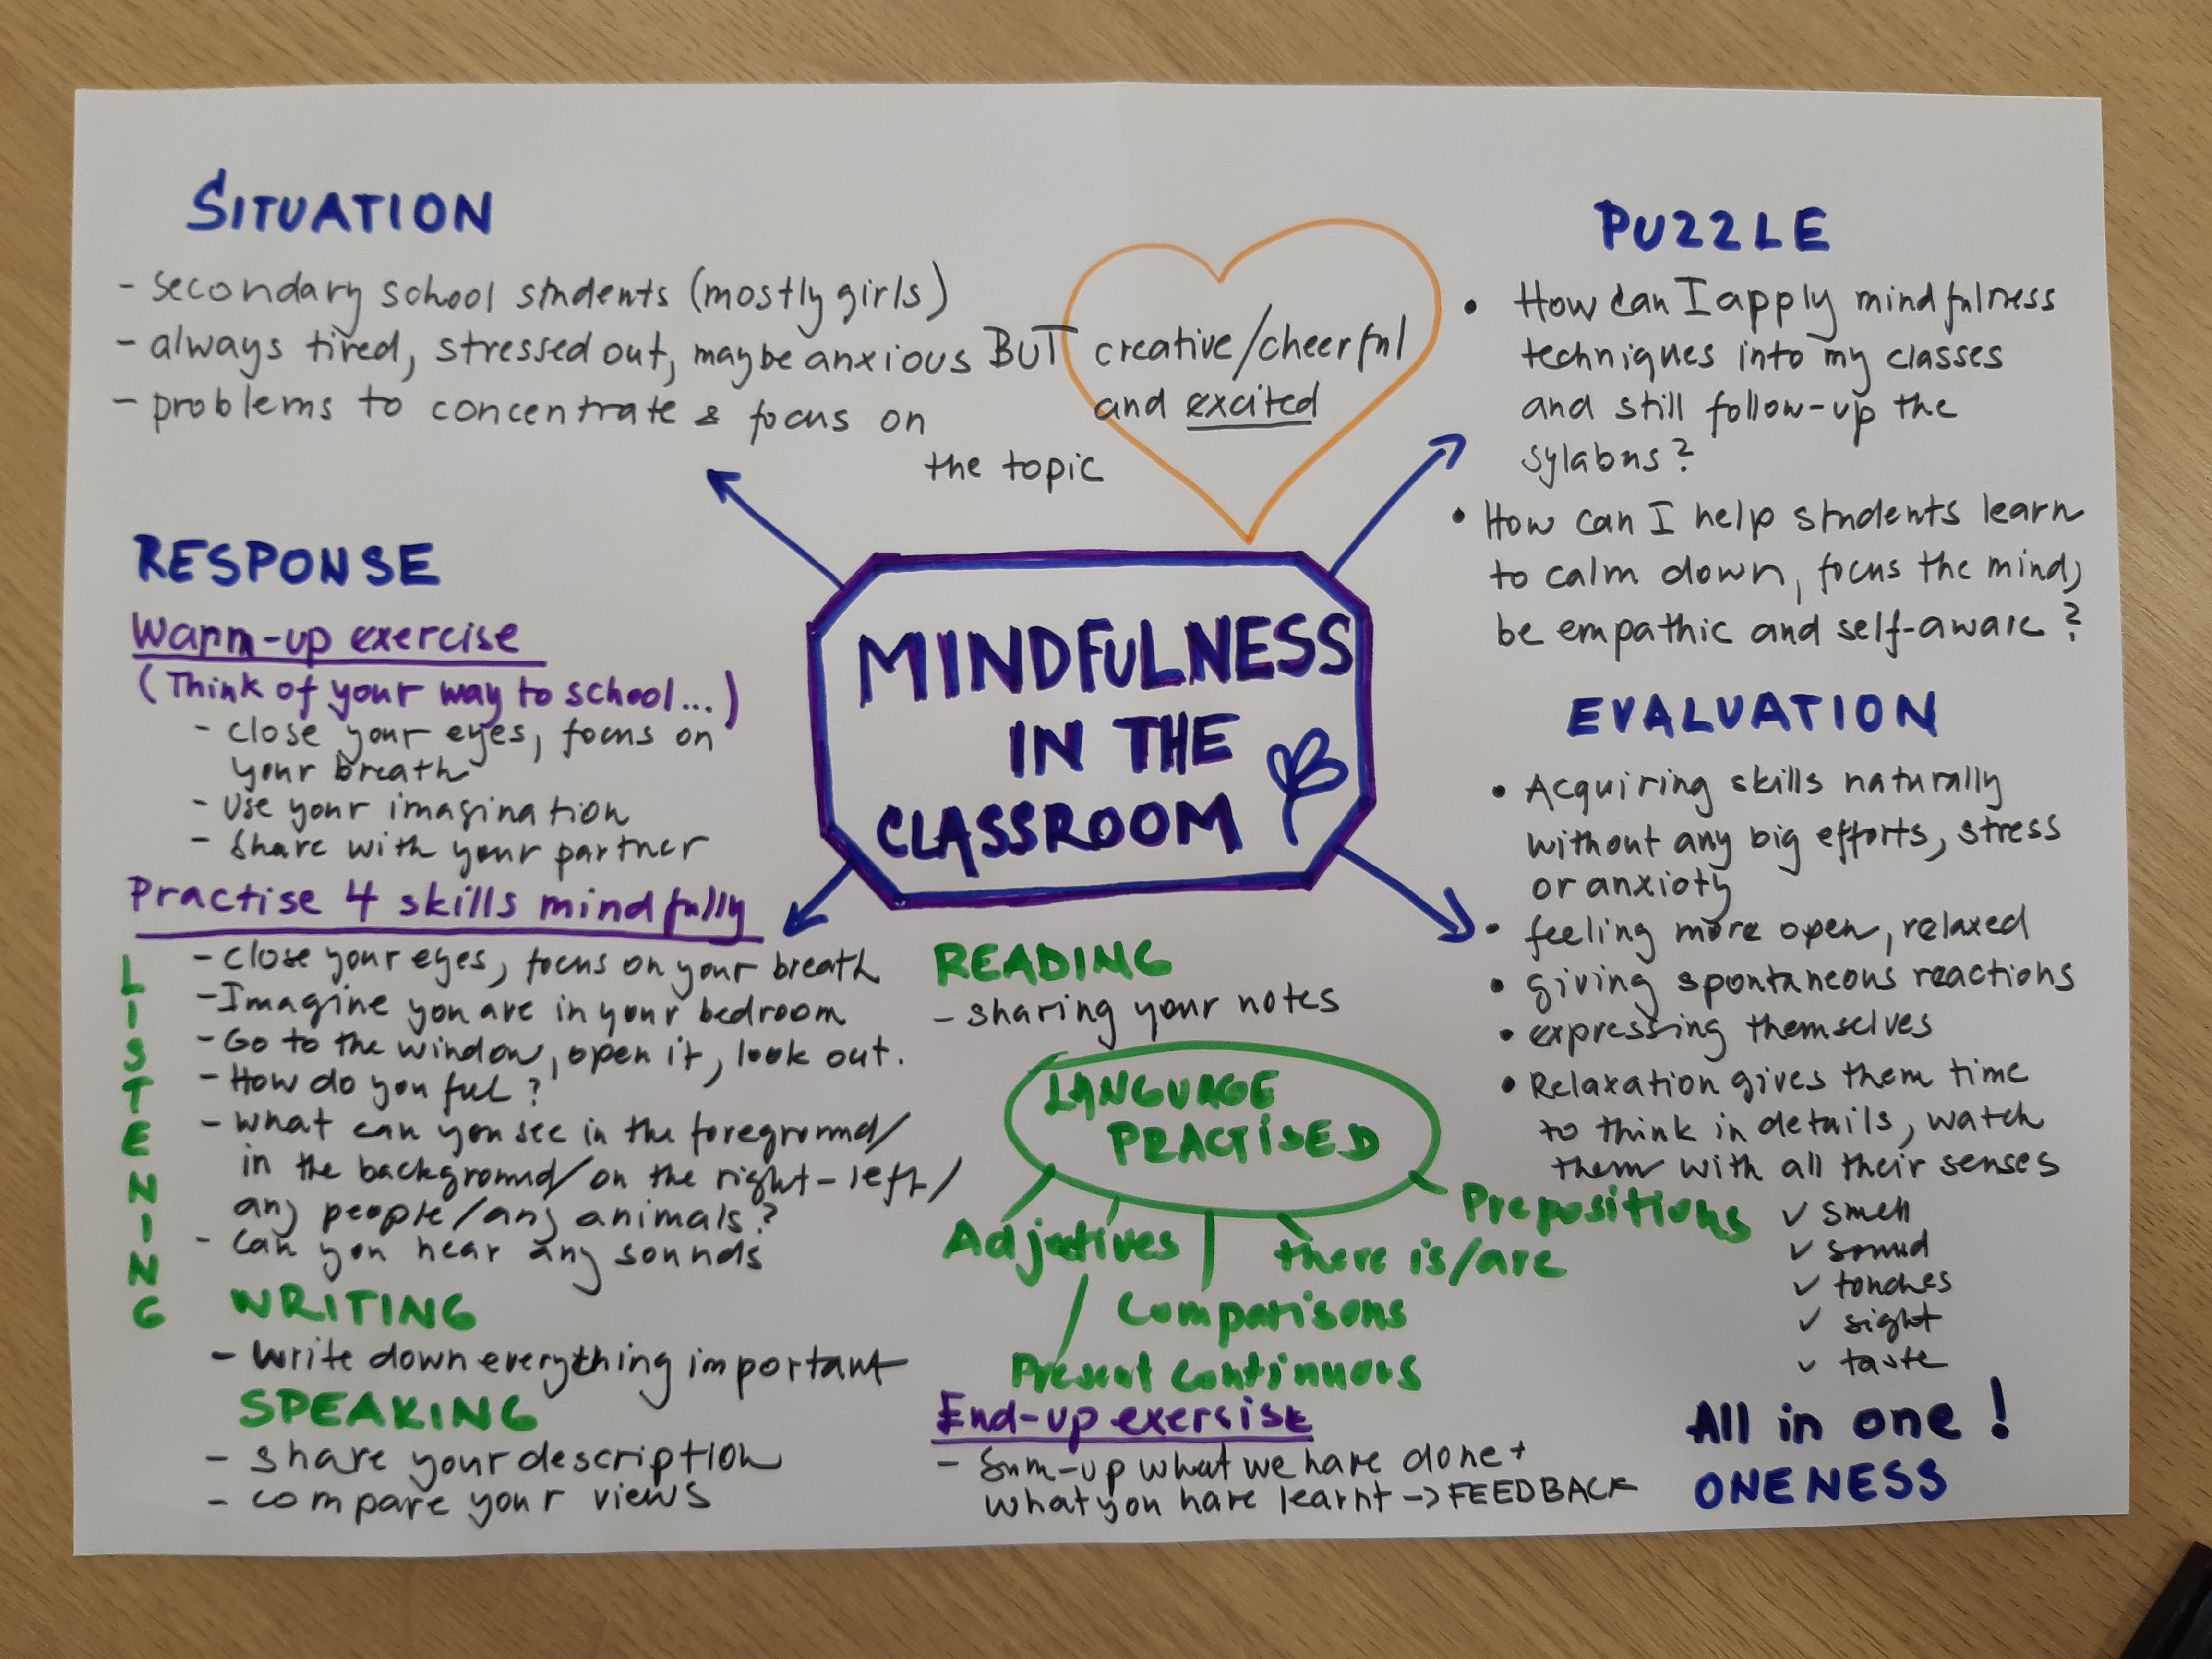 SITUATION
- secondary school students (mostly girls)
- always tired, stressed out, maybe anxious BUT creative/cheerful
and excited
- problems to concentrate & focus on
the topic
PUZZLE
• How can I apply mindfulness
techniques into my classes
and still follow-up the
sylabus?
• How can I help students learn
to calm down, focus the mind,
be empathic and self-aware?
MINDFULNESS
IN THE
CLASSROOM
RESPONSE
Warm-up exercise
(Think of your way to school...)
- close your eyes, focus on
your breath
- Use your imagination
- Share with your partner
Practise 4 skills mindfully
LISTENING
- close your eyes, focus on your breath
- Imagine you are in your bedroom
- Go to the window, open it, look out.
- How do you feel?
- What can you see in the foreground/
in the background/on the right-left/
any people/any animals?
- Can you hear any sounds
WRITING
- Write down everything important
SPEAKING
- share your description
- compare your views
READING
- sharing your notes
LANGUAGE
PRACTISED
Adjectives
Prepositions
there is/are
Comparisons
Present continuous
End-up exercise
- Sum-up what we have done +
what you have learnt -> FEEDBACK
EVALUATION
• Acquiring skills naturally
without any big efforts, stress
or anxioty
• feeling more open, relaxed
• giving spontaneous reactions
• expressing themselves
• Relaxation gives them time
to think in details, watch
them with all their senses
✓ smell
✓ sound
✓ touches
✓ sight
✓ taste
All in one!
ONENESS